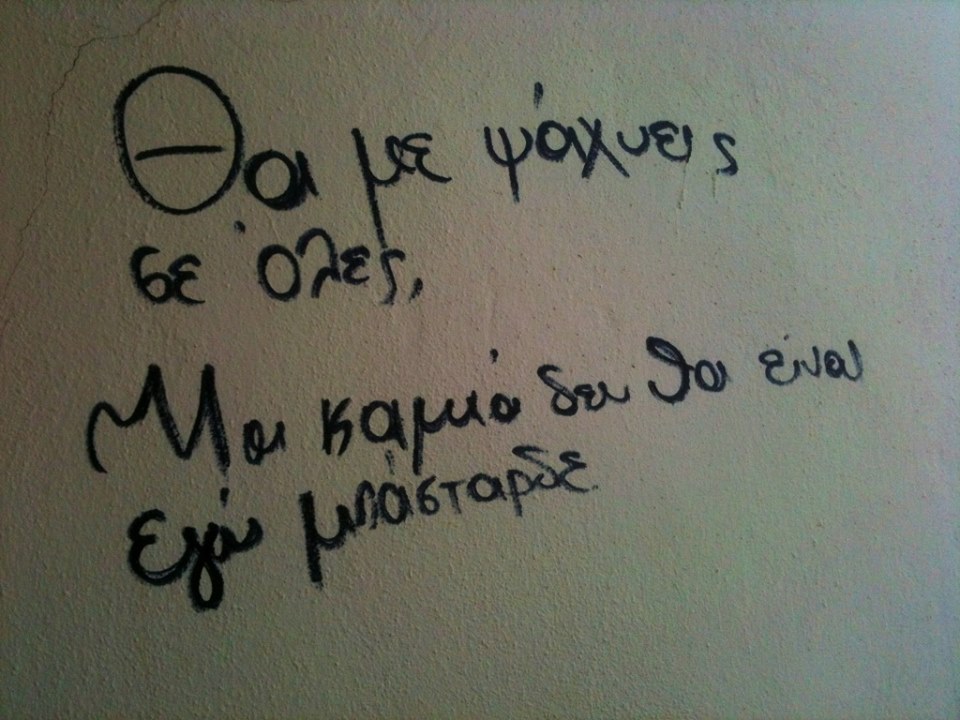 Θα με ψάχνεις
σε όλες,
Μα καμιά δεν θα είναι
εγώ μπάσταρδε